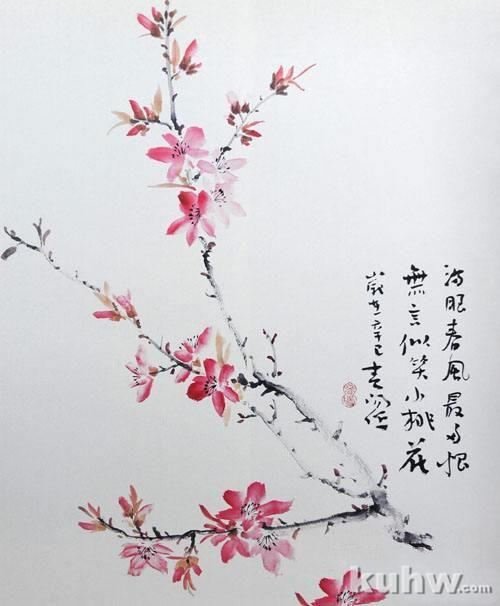 満眼春風最多恨
無言似笑小桃花
歲在辛巳
kuhw.com